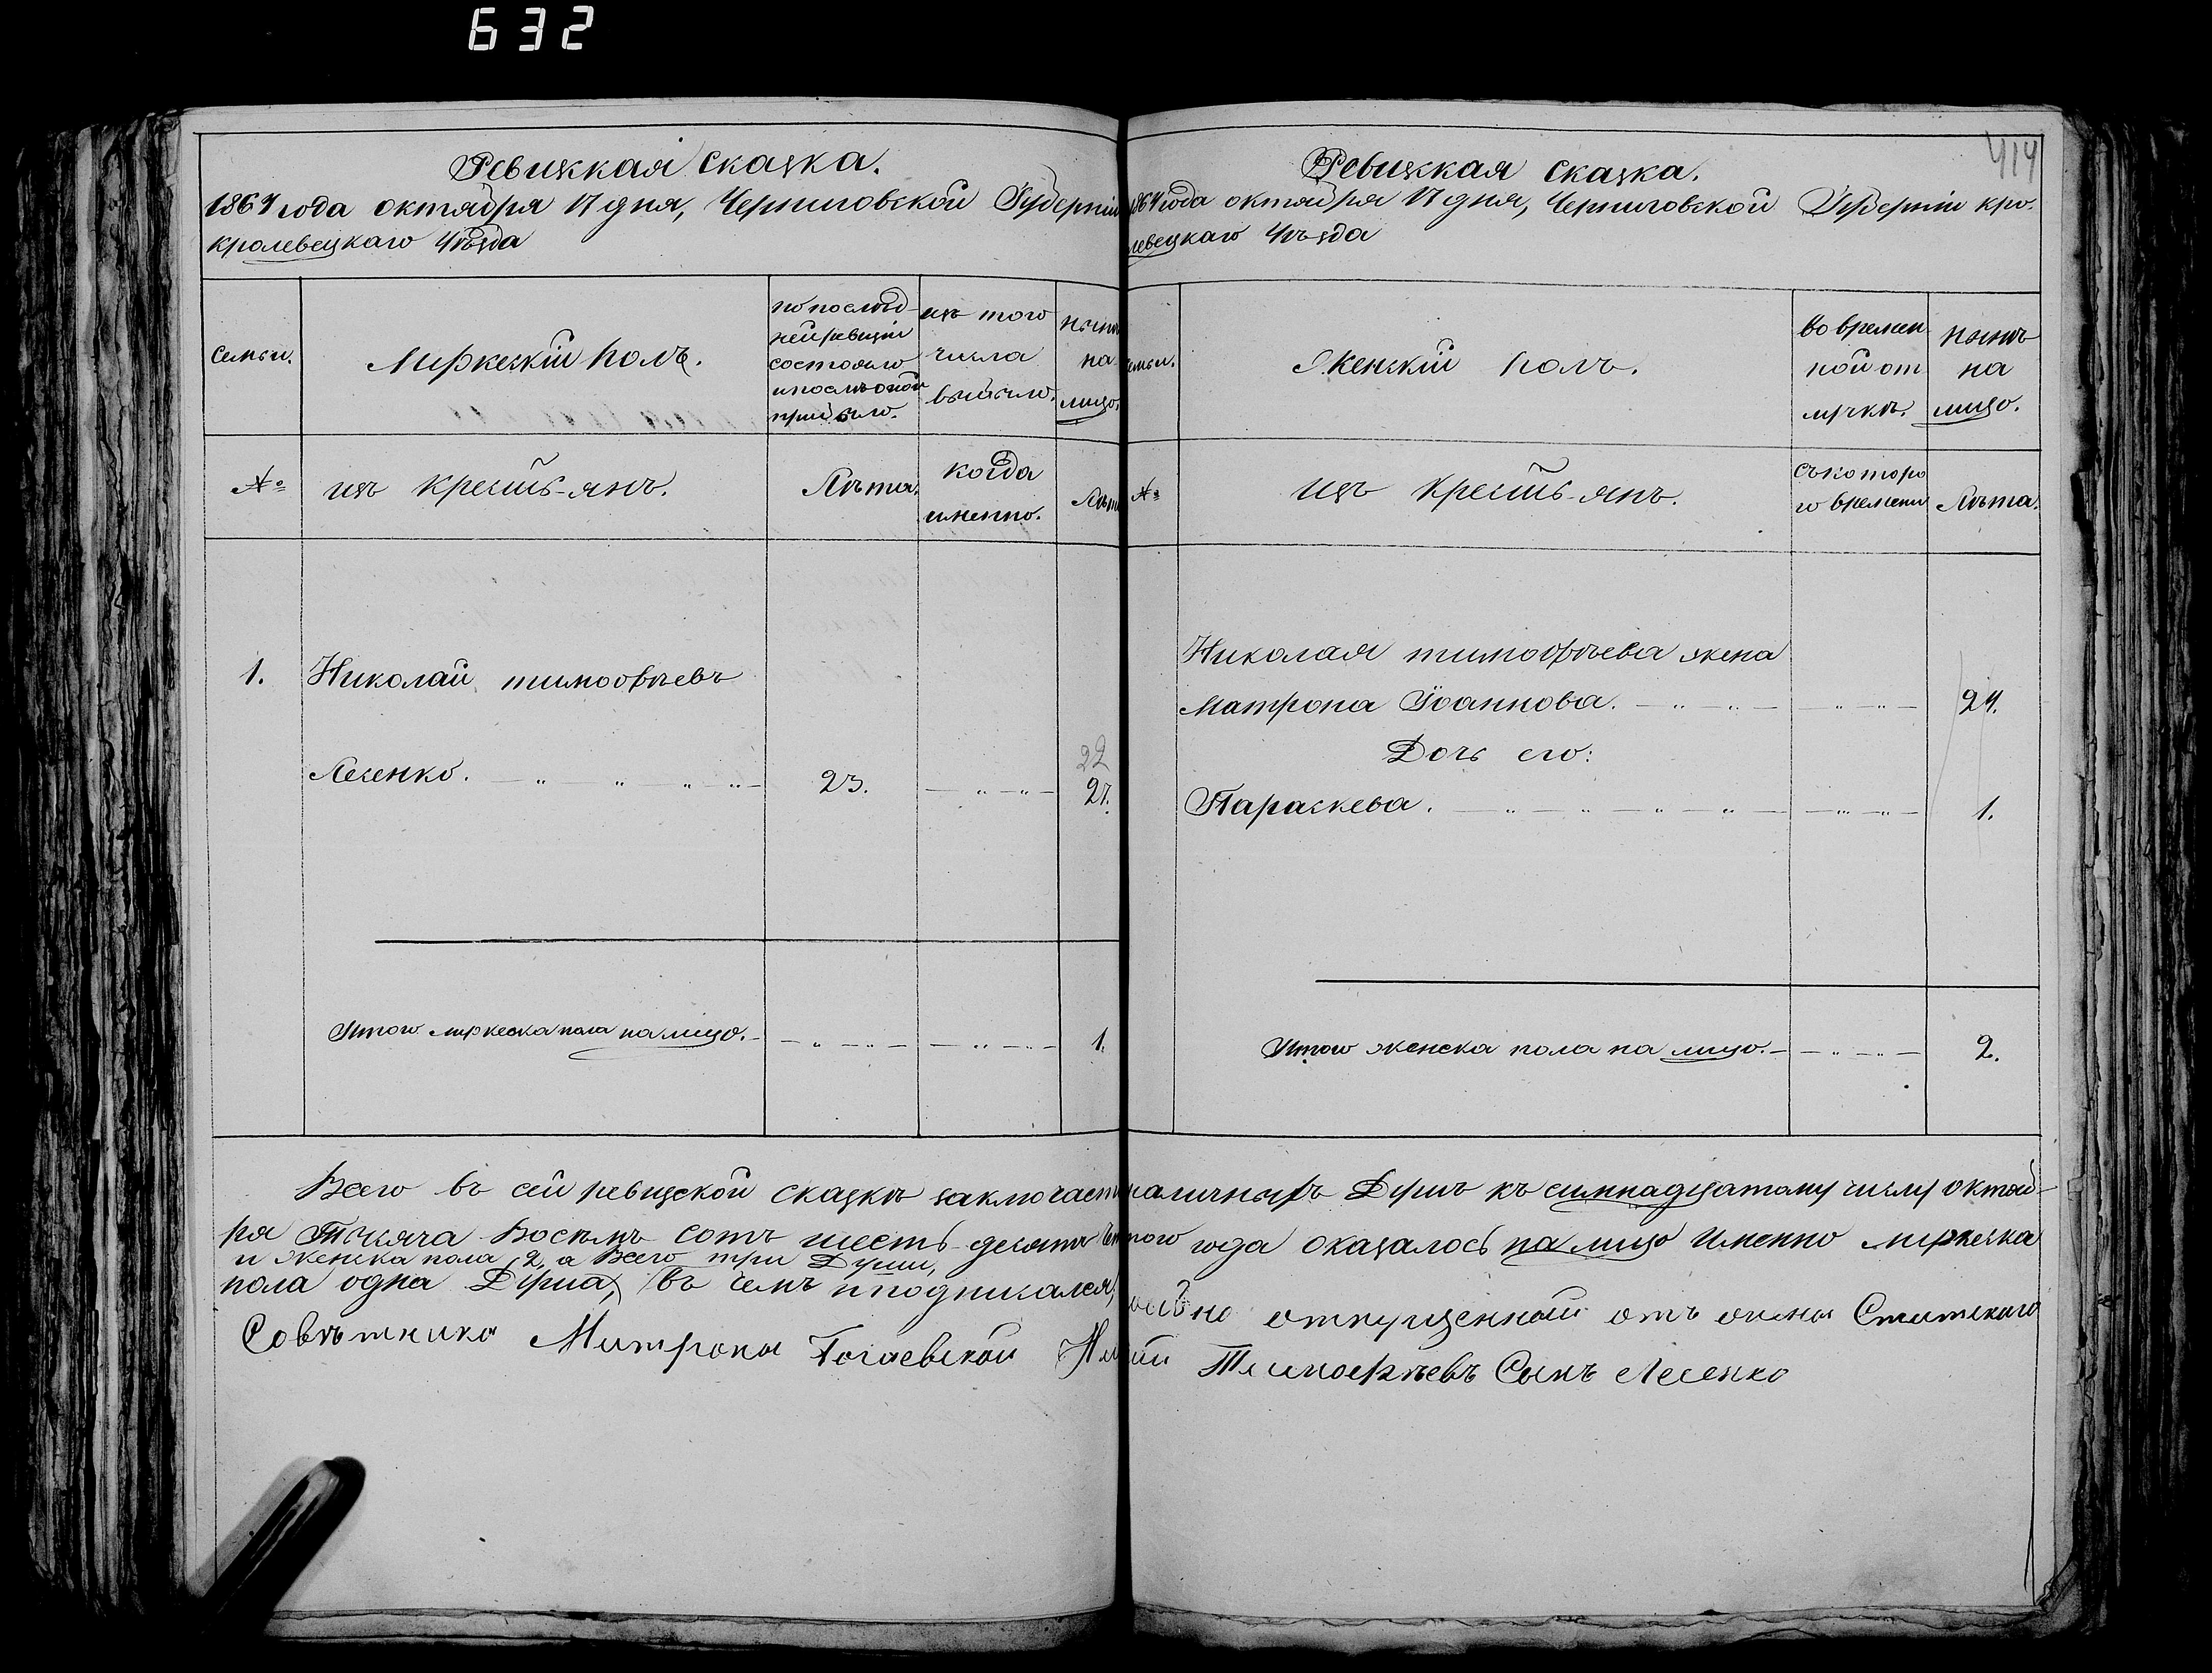 632
Ревизская сказка.
1864 года октября 17 дня, Черниговской Губерніи
кролевецкаго Уѣзда
Семьи.
Мужескій полъ.
по послѣд-
ней ревизіи
состояло
и послѣ оной
прибыло.
изъ того
числа
выбыло.
нынѣ
на
лицо.
№
изъ крестьянъ.
Лѣта.
когда
именно.
Лѣта
1.
Николай тимофѣевъ
Лесенко.
23.
22
27.
Итого мужеска пола на лицо.
1.
Всего въ сей ревизской сказкѣ заключает
ря Тысяча Восемь сотъ шесть десять
и женска пола 2, а Всего три Души,
пола одна Душа, въ чемъ и подписался,
Совѣтника Митрона
414
Ревизская сказка.
1864 года октября 17 дня, Черниговской Губерніи кро-
левецкаго Уѣзда
семьи.
Женскій полъ.
во времен
ной от
лучкѣ.
нынѣ
на
лицо.
№
изъ крестьянъ.
съ которо
го времени
Лѣта.
Николая тимофѣева жена
Матрона Іоаннова.
24.
Дочь его:
Параскева.
1.
Итого женска пола на лицо.
2.
наличныхъ Душъ къ симнадцатому числу октяб-
года оказалось на лицо Именно мужеска
отпущенной отъ Статского
Тимофѣевъ Сынъ Лесенко